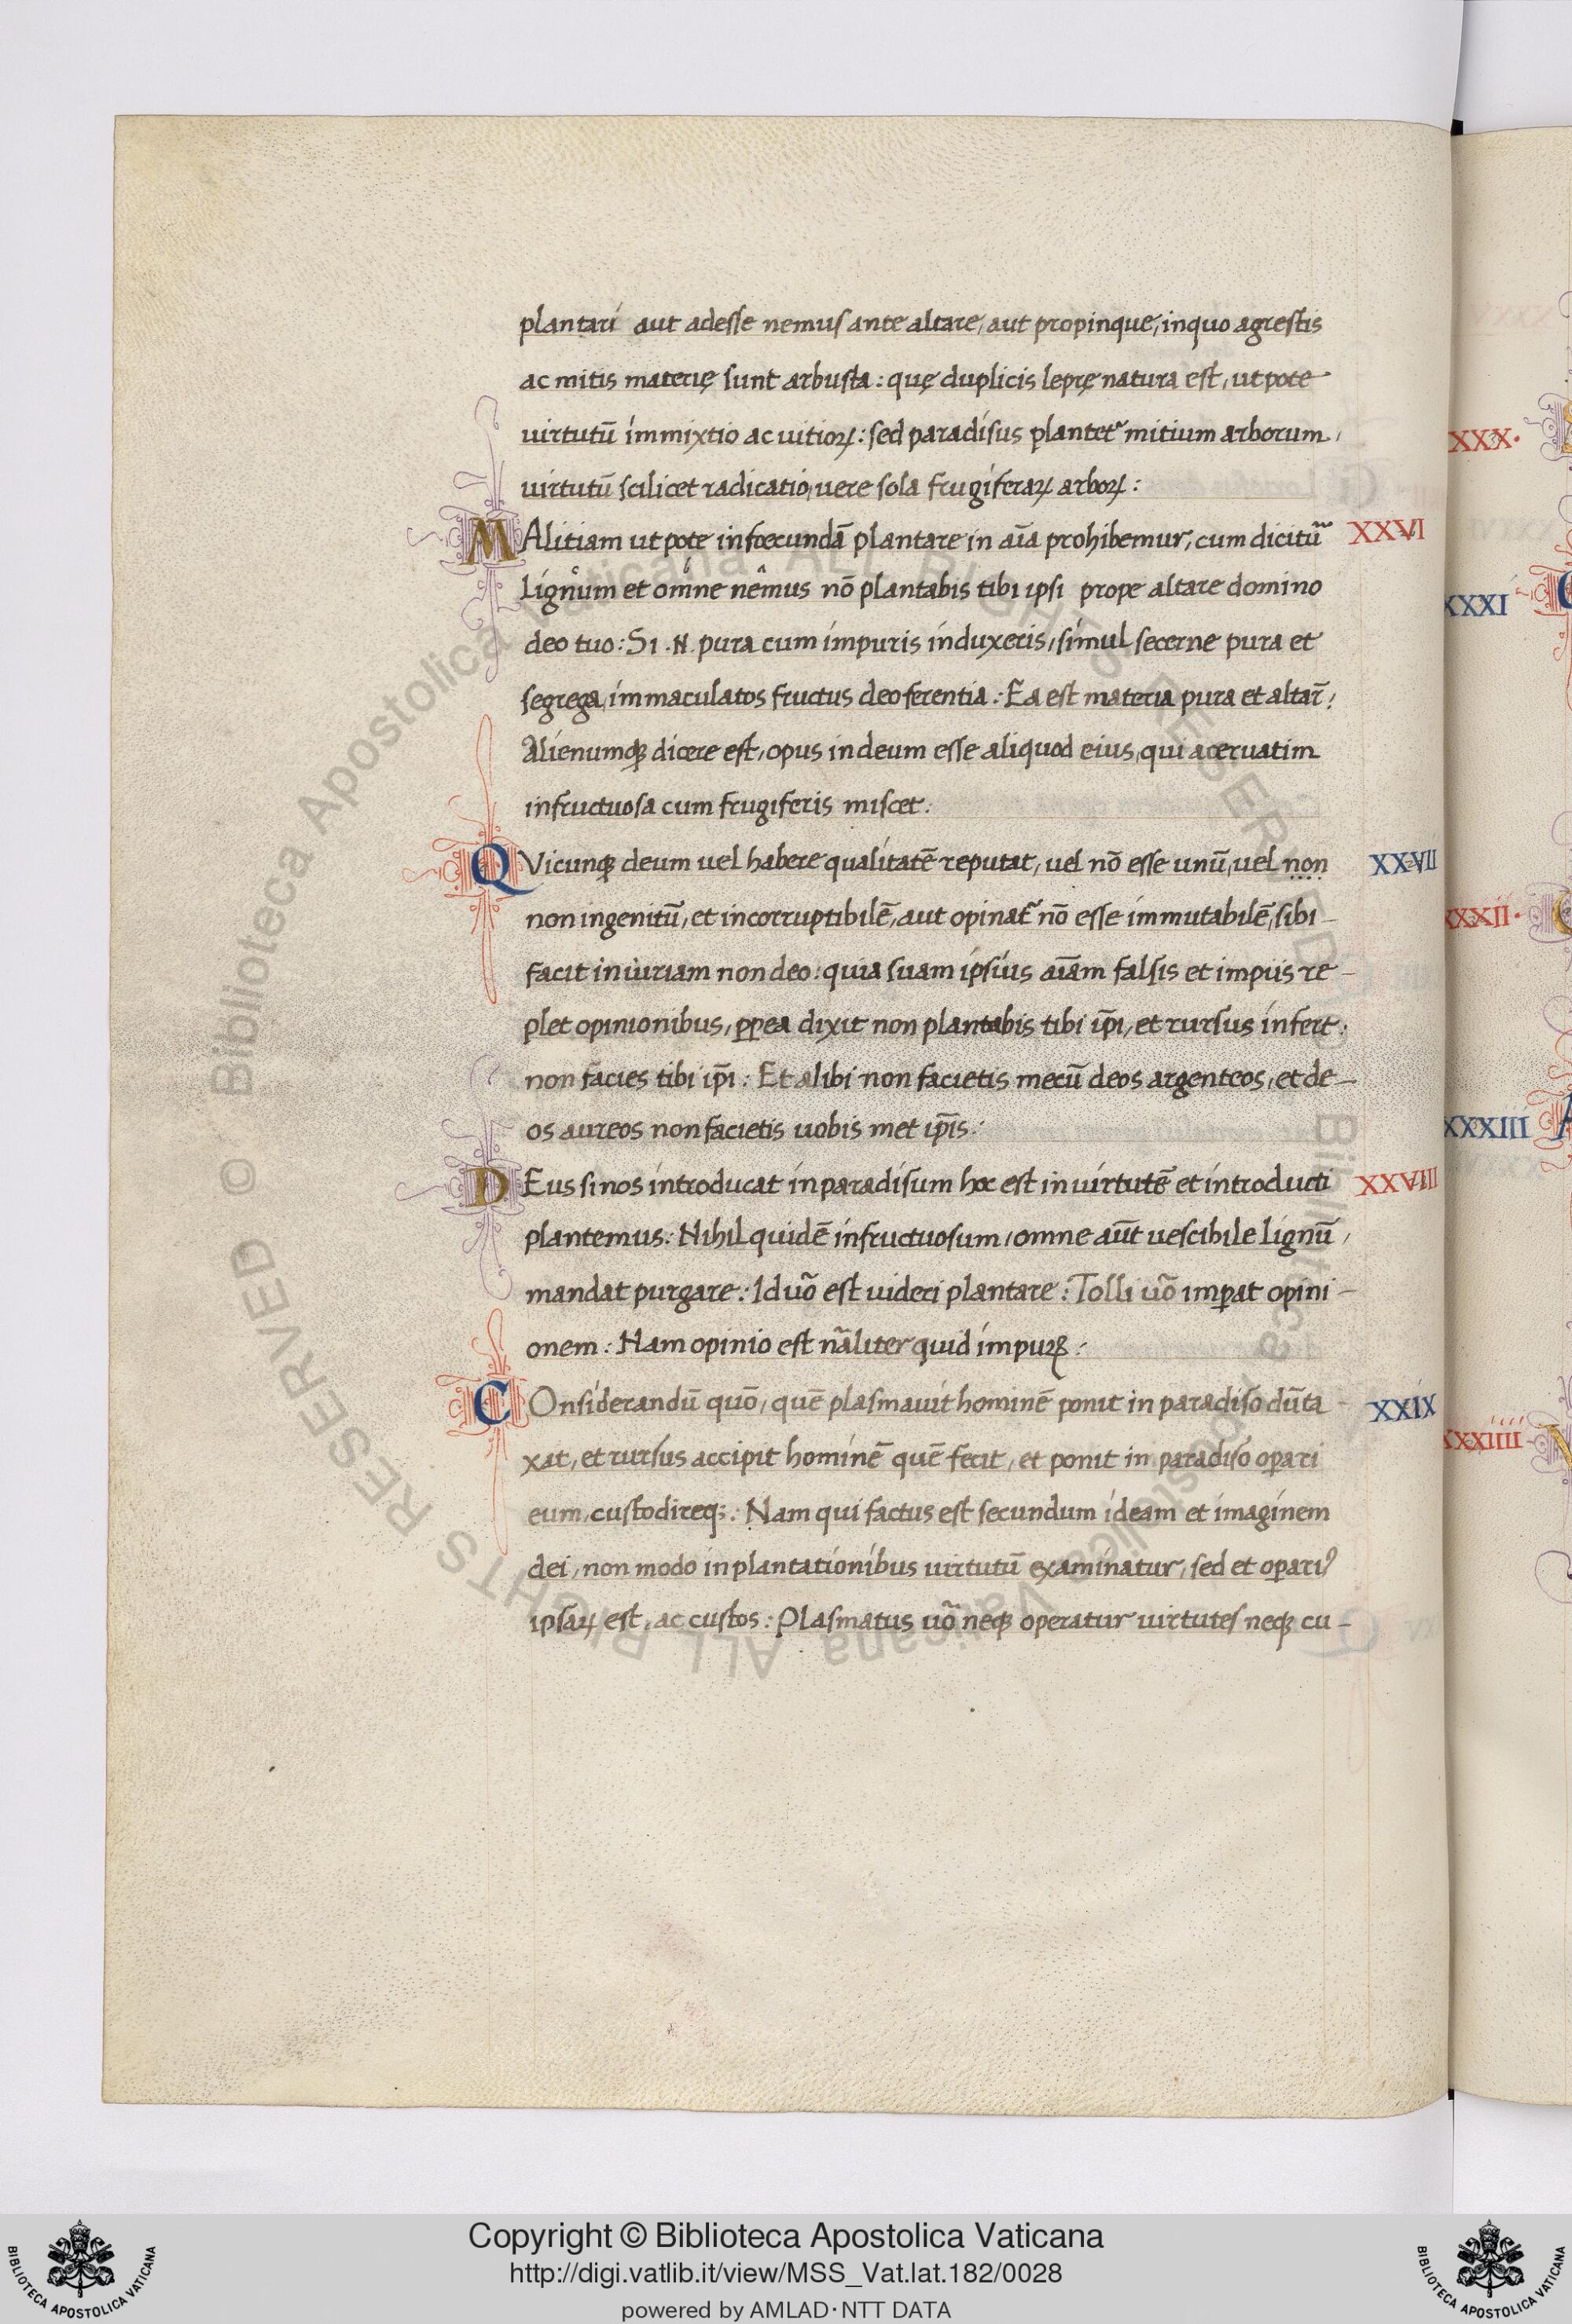 plantari aut adesse nemus ante altare, aut propinque, inquo agrestis
ac mitis materię sunt arbusta: quę duplicis leprę natura est, ut pote
uirtutū immixtio ac uitioꝝ: sed paradisus plantet᷑ mitium arborum,
uirtutū scilicet radicatio, uere sola frugiferaꝝ arboꝝ:
MAlitiam ut pote infoecundā plantare in aīa prohibemur, cum dicitū XXVI
Lignum et omne nemus nō plantabis tibi ipsi prope altare domino
deo tuo: Si .N. pura cum impuris induxeris, simul secerne pura et
segrega, immaculatos fructus deo ferentia: Ea est materia pura et altar̄:
Alienumqꝫ dicere est, opus in deum esse aliquod eius, qui aceruatim
infructuosa cum frugiferis miscet:
QVicunqꝫ deum uel habere qualitatē reputat, uel nō esse unū, uel non XXVII
non ingenitū, et incorruptibilē, aut opinat᷑ nō esse immutabilē, sibi
facit iniuriam non deo: quia suam ipsius aīam falsis et impiis re-
plet opinionibus, ꝓpea dixit non plantabis tibi ip̄i, et rursus infert:
non facies tibi ip̄i: Et alibi non facietis mecū deos argenteos, et de-
os aureos non facietis uobis met ip̄is:
DEus si nos introducat in paradisum hoc est in uirtutē et introducti XXVIII
plantemus: Nihil quidē infructuosum, omne aūt uescibile lignū,
mandat purgare: Id uō est uideri plantare: Tolli uō imꝑat opini-
onem: Nam opinio est nāliter quid impuꝝ:
COnsiderandū quō, quē plasmauit hominē ponit in paradiso dūta- XXIX
xat, et rursus accipit hominē quē fecit, et ponit in paradiso oꝑari
eum, custodireqꝫ: Nam qui factus est secundum ideam et imaginem
dei, non modo in plantationibus uirtutū examinatur, sed et oꝑariꝰ
ipsaꝝ est, ac custos: Plasmatus uō neqꝫ operatur uirtutes neqꝫ cu-
XXX.
XXXI
XXXII.
XXXIII
XXXIIII
© Biblioteca Apostolica Vaticana ALL RIGHTS RESERVED © Biblioteca Apostolica Vaticana ALL RIGHTS RESERVED
Copyright © Biblioteca Apostolica Vaticana
http://digi.vatlib.it/view/MSS_Vat.lat.182/0028
powered by AMLAD·NTT DATA
BIBLIOTECA APOSTOLICA VATICANA
BIBLIOTECA APOSTOLICA VATICANA